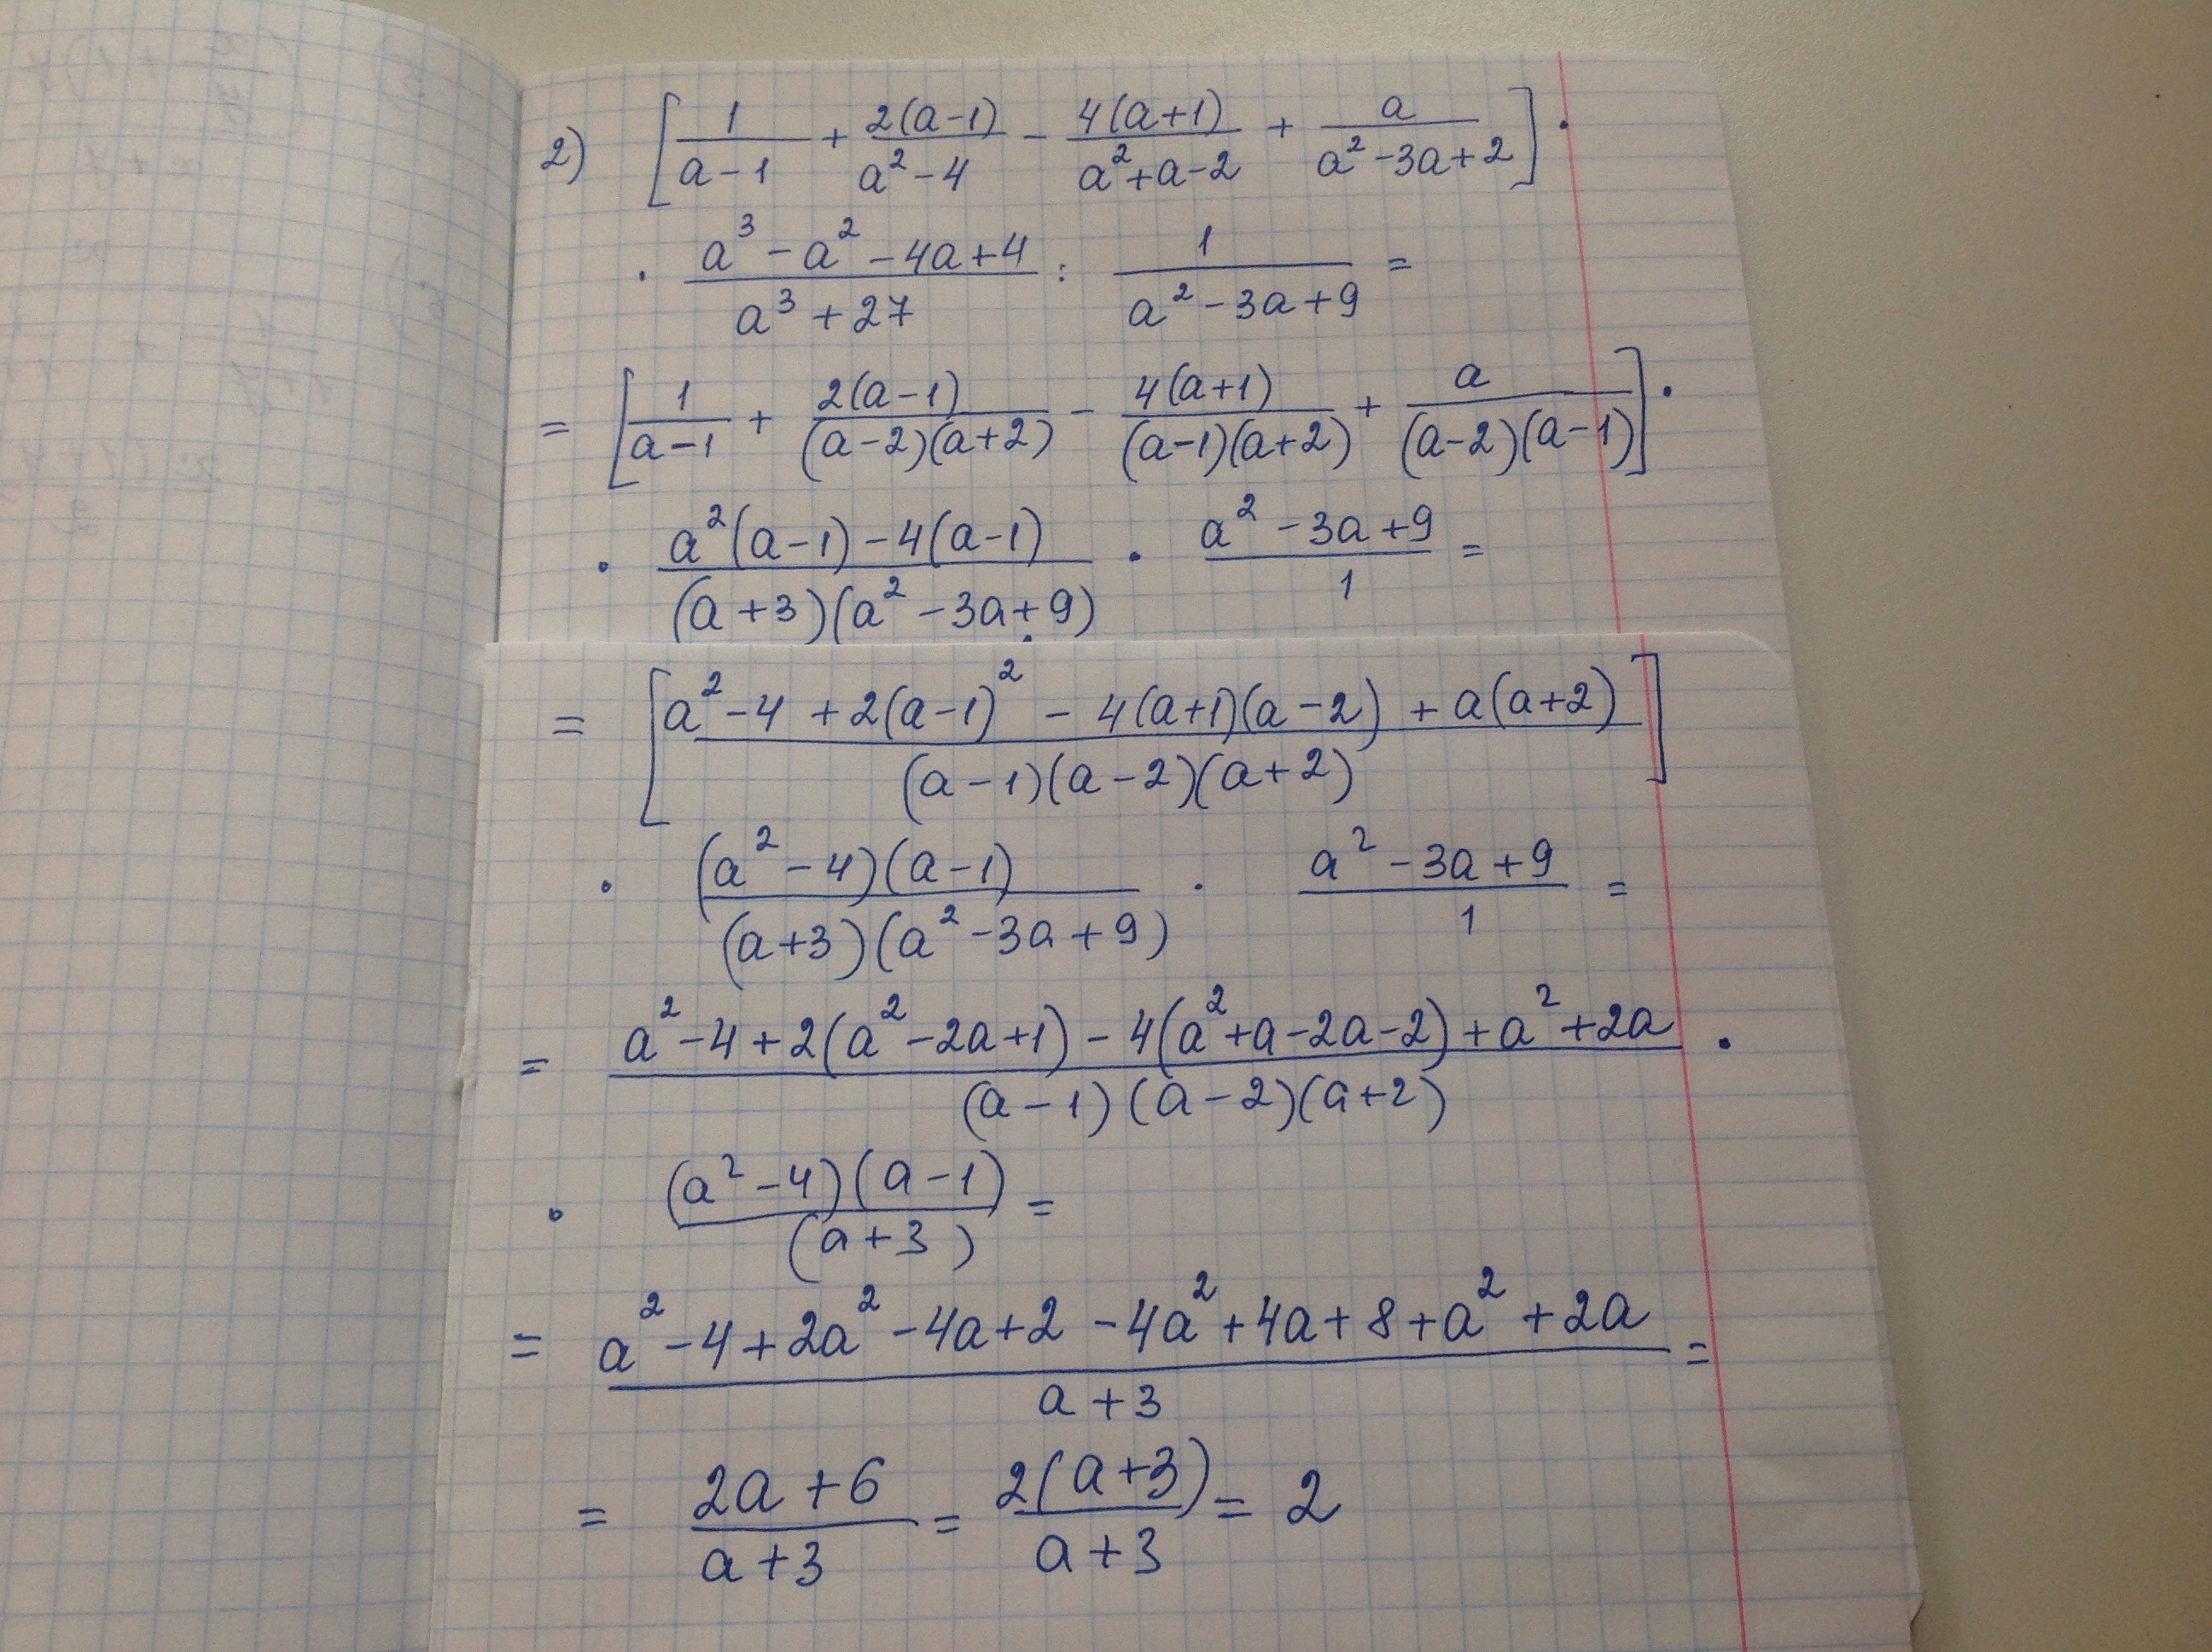 2) [1/(a-1) + 2(a-1)/(a²-4) - 4(a+1)/(a²+a-2) + a/(a²-3a+2)] ·
· (a³-a²-4a+4)/(a³+27) : 1/(a²-3a+9) =
= [1/(a-1) + 2(a-1)/((a-2)(a+2)) - 4(a+1)/((a-1)(a+2)) + a/((a-2)(a-1))] ·
· (a²(a-1)-4(a-1))/((a+3)(a²-3a+9)) · (a²-3a+9)/1 =
= [(a²-4+2(a-1)²-4(a+1)(a-2)+a(a+2))/((a-1)(a-2)(a+2))]
· ((a²-4)(a-1))/((a+3)(a²-3a+9)) · (a²-3a+9)/1 =
= (a²-4+2(a²-2a+1)-4(a²+a-2a-2)+a²+2a)/((a-1)(a-2)(a+2)) ·
· ((a²-4)(a-1))/(a+3) =
= (a²-4+2a²-4a+2-4a²+4a+8+a²+2a)/(a+3) =
= (2a+6)/(a+3) = 2(a+3)/(a+3) = 2